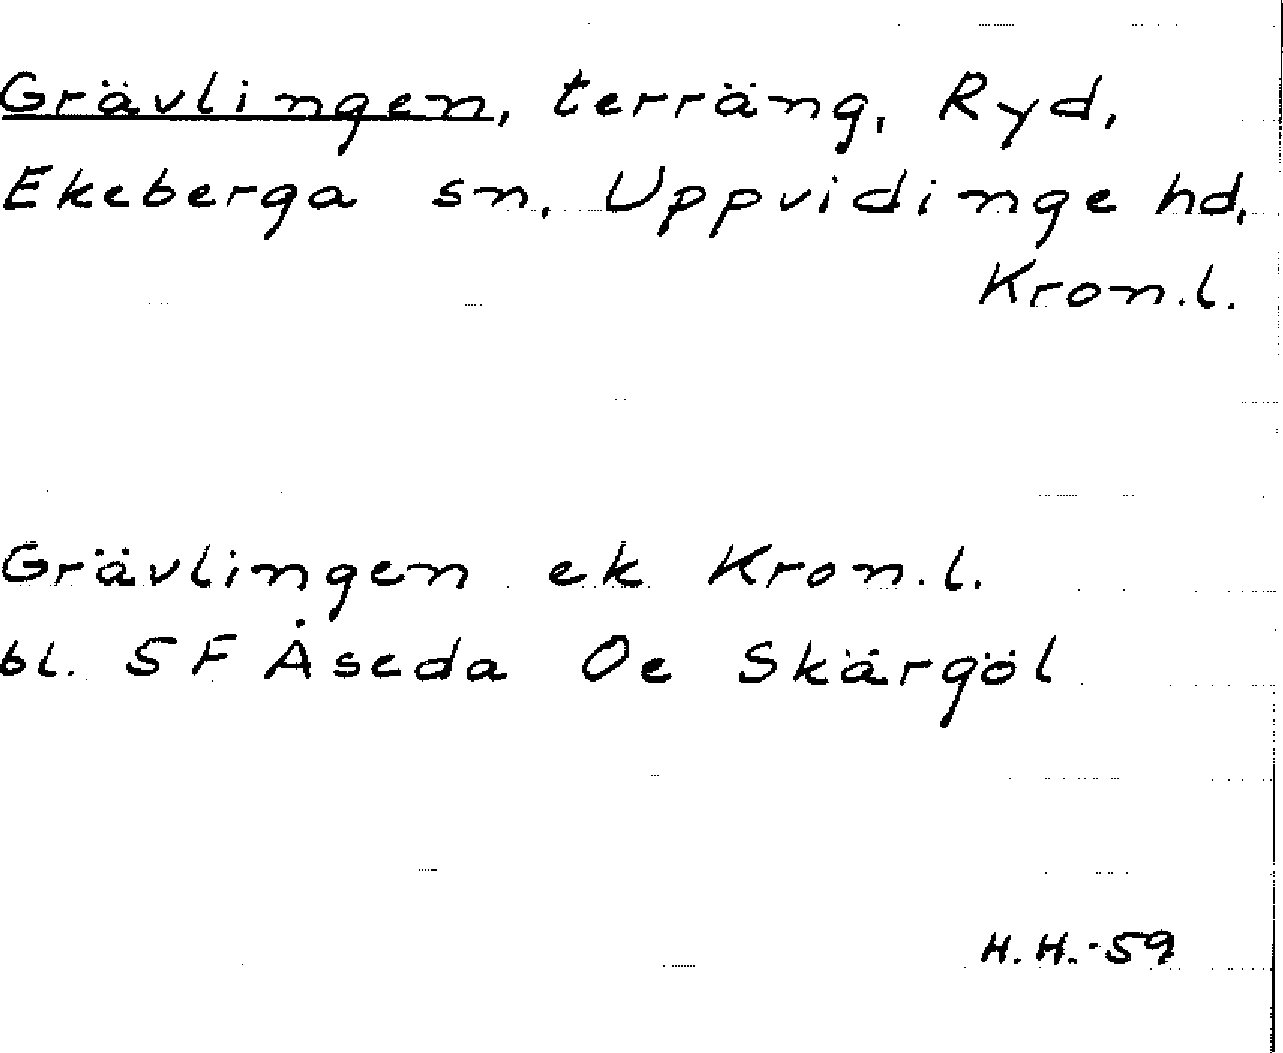 Grävlingen, terräng, Ryd,
Ekeberga sn, Uppvidinge hd,
Kron.l.
Grävlingen ek Kron.l.
bl. 5 F Åseda Oe Skärgöl
H.H.-59